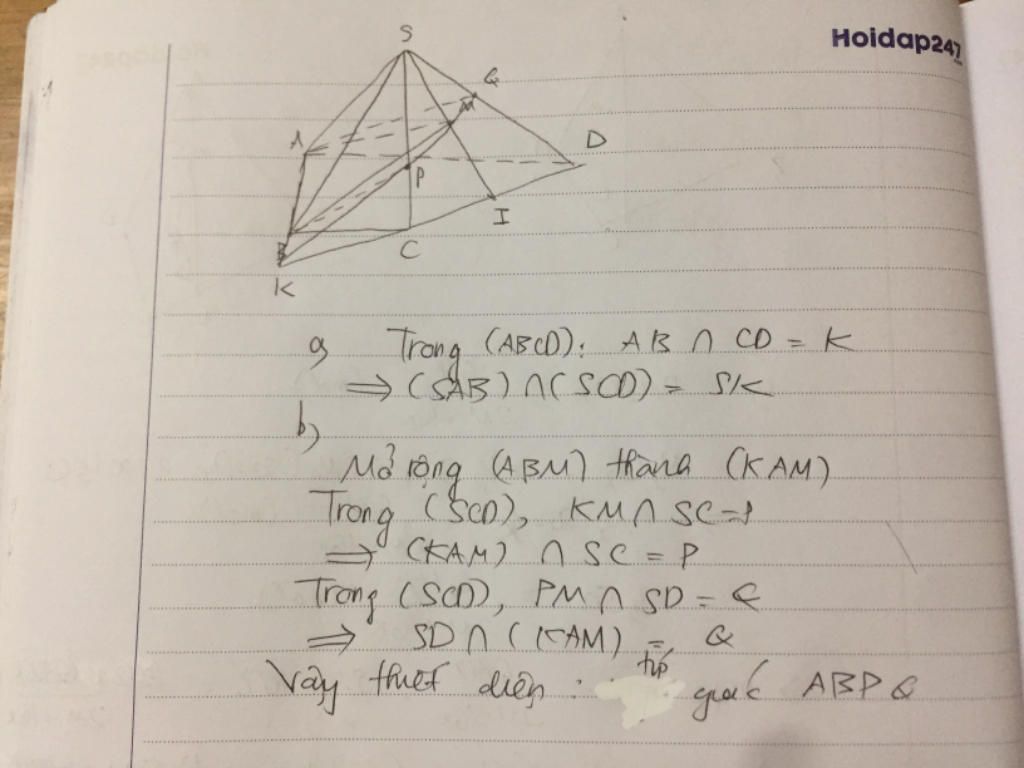 Hoidap247
S
Q
M
A
D
P
I
B
C
K
a) Trong (ABCD): AB ∩ CD = K
⇒ (SAB) ∩ (SCD) = SK
b)
Mở rộng (ABM) thành (KAM)
Trong (SCD), KM ∩ SC = P
⇒ (KAM) ∩ SC = P
Trong (SCD), PM ∩ SD = Q
⇒ SD ∩ (KAM) = Q
Vậy thiết diện : tứ giác ABPQ